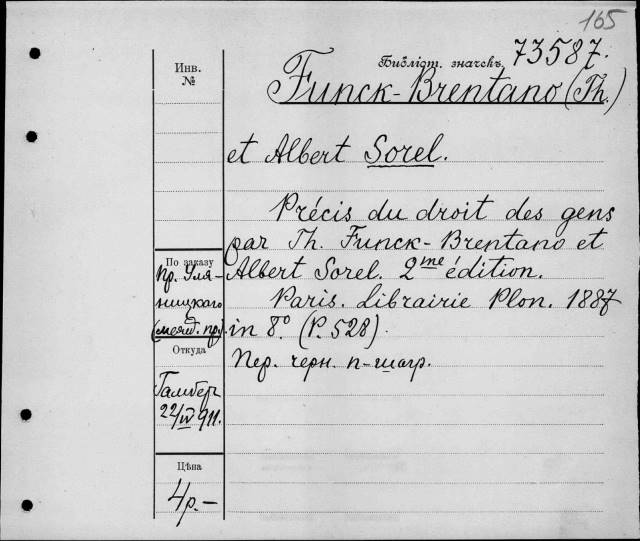 165
Инв. №
Библіот. значекъ 73587.
Funck-Brentano (Th.)
et Albert Sorel.
Précis du droit des gens
par Th. Funck-Brentano et
Albert Sorel. 2me édition.
Paris. Librairie Plon. 1887
in 8° (P. 528).
Пер. черн. п-шагр.
По заказу
Пр. Уля-
ницкаго
(межд. пр.)
Откуда
Гамбер
22/IV 911.
Цѣна
4р.-